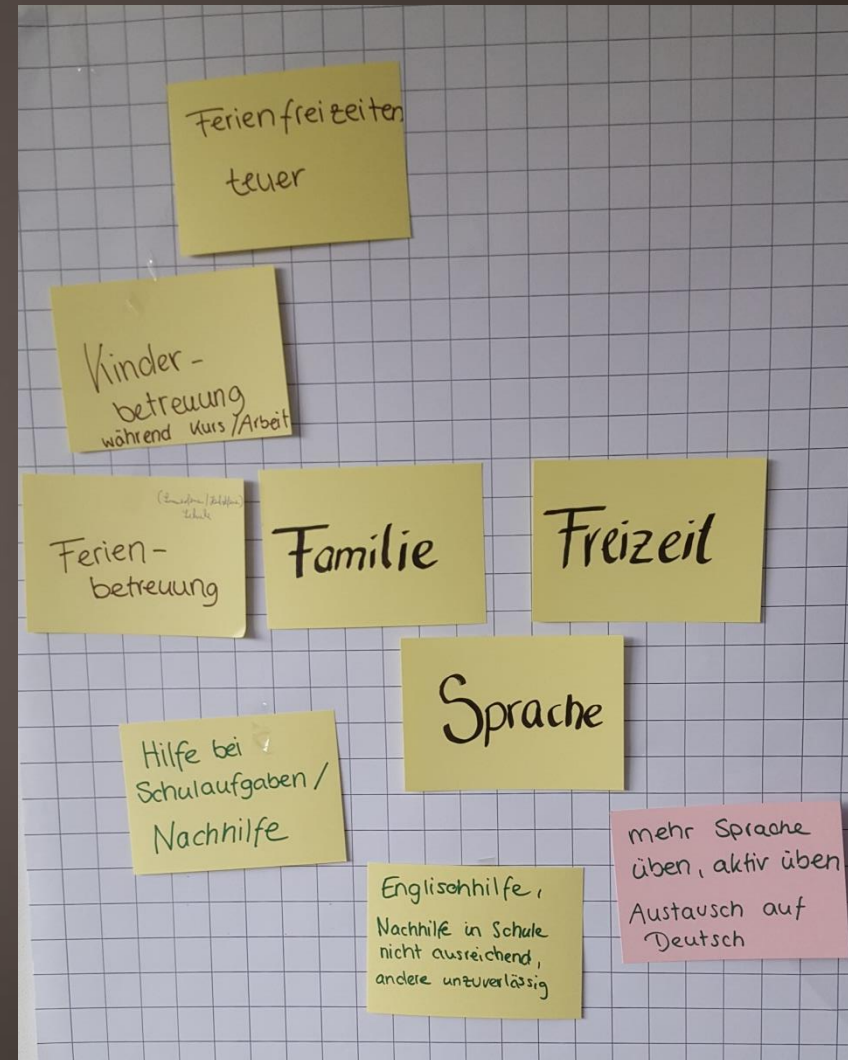 Ferienfreizeiten
teuer
Kinder-
betreuung
während Kurs/Arbeit
Ferien-
betreuung
Familie
Freizeit
Sprache
Hilfe bei
Schulaufgaben/
Nachhilfe
Englischhilfe,
Nachhilfe in Schule
nicht ausreichend,
andere unzuverlässig
mehr Sprache
üben, aktiv üben
Austausch auf
Deutsch